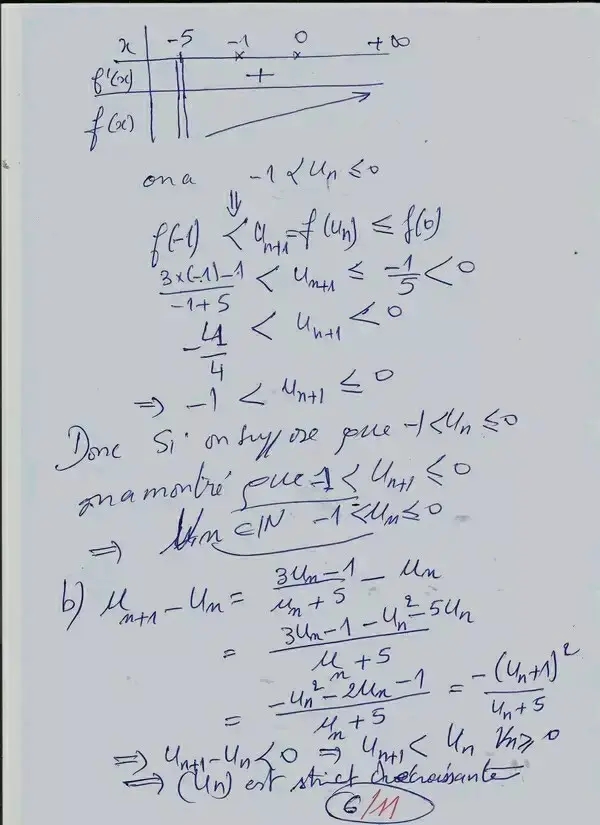 x -5 -1 0 +∞
f'(x) +
f(x)
on a -1 < Un ≤ 0
⇓
f(-1) < Un+1 = f(Un) ≤ f(0)
(3×(-1)-1)/(-1+5) < Un+1 ≤ -1/5 < 0
-4/4 < Un+1 < 0
⇒ -1 < Un+1 ≤ 0
Donc Si on suppose que -1 < Un ≤ 0
on a montré que -1 < Un+1 ≤ 0
⇒ ∀n ∈ IN -1 < Un ≤ 0
b) Un+1 - Un = (3Un-1)/(Un+5) - Un
= (3Un-1-Un²-5Un)/(Un+5)
= (-Un²-2Un-1)/(Un+5) = -(Un+1)²/(Un+5)
⇒ Un+1-Un < 0 ⇒ Un+1 < Un ∀n ≥ 0
⇒ (Un) est strict décroissante
6/11